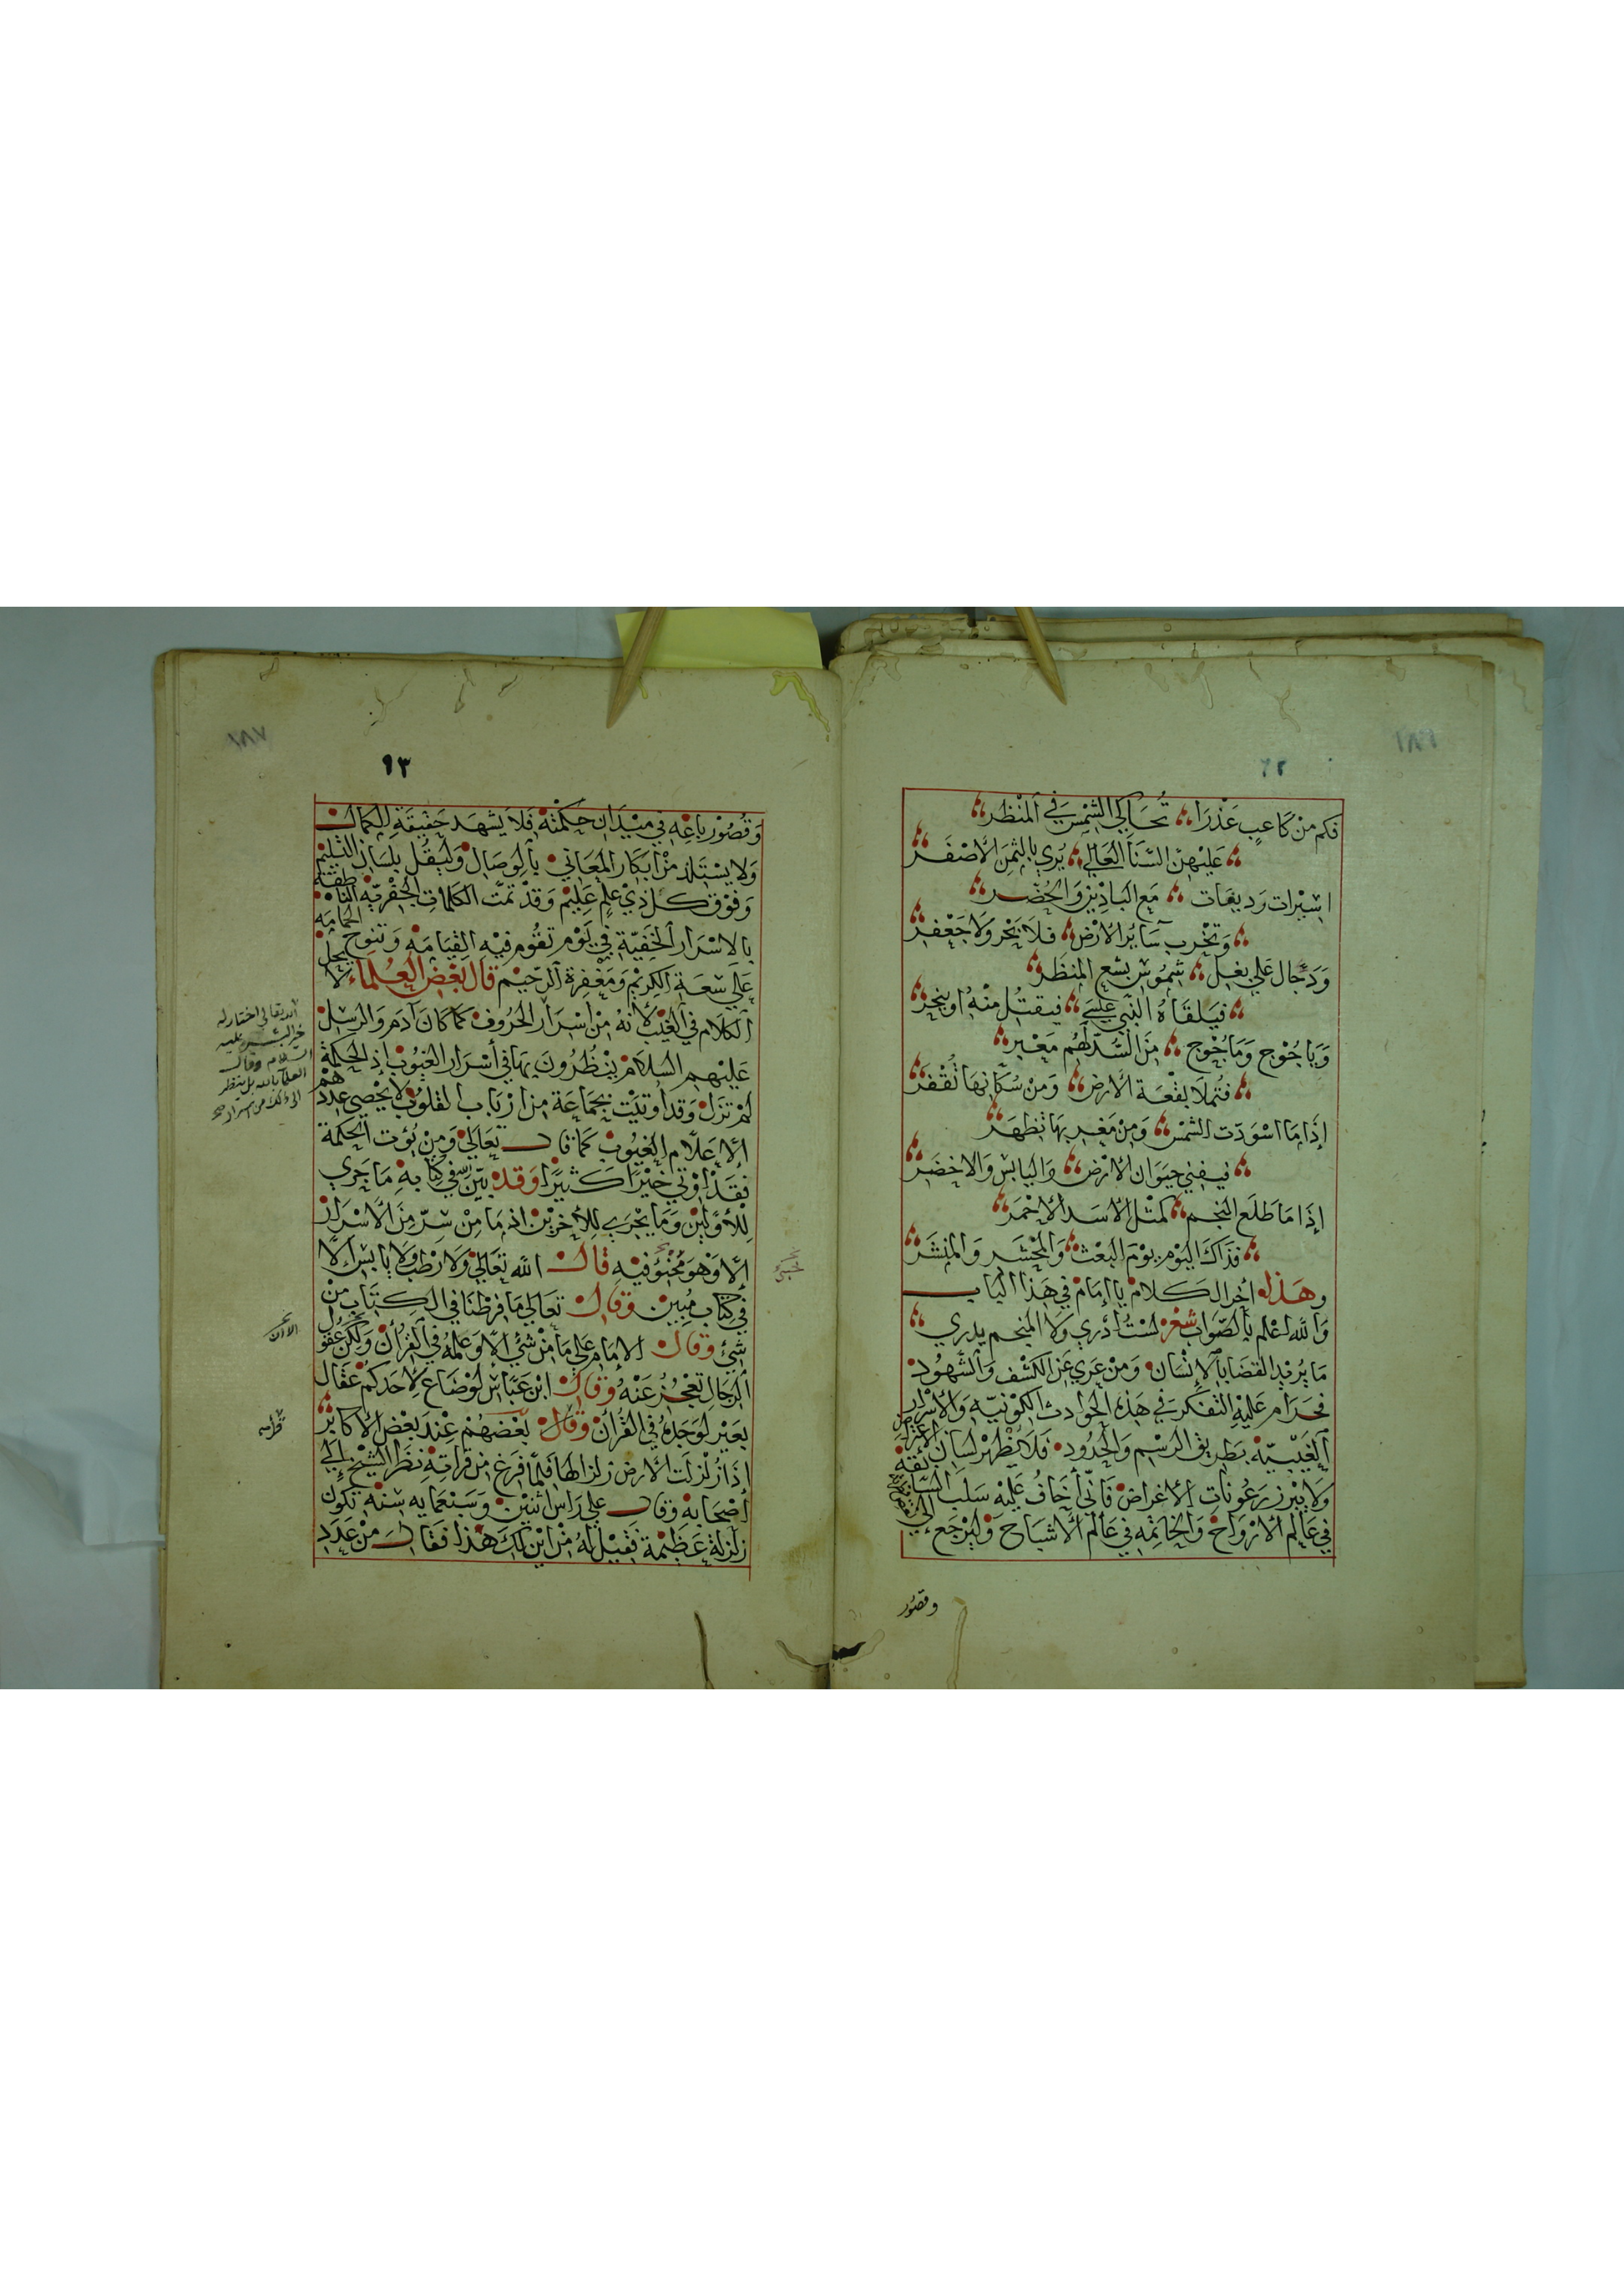 ١٨٦
٩٢
فكم من كاعب عذرا تحاكي الشمس في المنظر
عليهن السنا العالي يري بالثمن الاصفر
اسيرات وديعات مع الباذين والحضر
وتخرب سائر الارض فلا بحر ولا جعفر
ودجال علي بغل شموس بشع المنظر
فيلقاه النبي عيسي فيقتل منه او ينحر
وياجوج وماجوج من السد لهم معبر
فتملا بقعة الارض ومن سكانها تقفر
إذا ما اسودت الشمس ومن مغربها تظهر
فيفني حيوان الارض واليابس والاخضر
إذا ما طلع النجم كمثل الاسد الاحمر
فذاك اليوم يوم البعث والمحشر والمنشر
وهذا اخر الكلام يا إمام في هذا الباب
والله اعلم بالصواب شعر لست أدري ولا المنجم يدري
ما يريد القضا بالإنسان ومن عري عن الكشف والشهود
فحرام عليه التفكر في هذه الحوادث الكونيه والاسرار
الغيبيه بطريق الرسم والحدود فلا يظهر لسان الاعتراض
ولا يبرز رعونات الاغراض فاني أخاف عليه سلب السابقة
في عالم الارواح والخاتمه في عالم الاشباح وليرجع الي
وقصور
١٨٧
٩٣
وقصور باعه في ميدان حكمته فلا يشهد حقيقة الكمال
ولا يستلذ من أبكار المعاني بالوصال وليقل بلسان التسليم
وفوق كل ذي علم عليم وقد تمت الكلمات الجفريه الناطقة
بالاسرار الخفية في يوم تقوم فيه القيامه وتنوح الحمامه
علي سعة الكريم ومغفرة الرحيم قال بعض العلماء لا يحل
الكلام في الغيب لأنه من أسرار الحروف كما كان آدم والرسل
عليهم السلام ينظرون بها في أسرار الغيوب إذ الحكمة
لم تزل وقد أوتيت بجماعة من ارباب القلوب لا يحصي عددهم
الا علام الغيوب كما قال تعالي ومن يؤت الحكمة
فقد أوتي خيرا كثيرا وقد بين في كتابه ما جري
للأولين وما يجري للأخرين اذ ما من سر من الاسرار
إلا وهو مخبؤ فيه قال الله تعالي ولا رطب ولا يابس الا
في كتاب مبين وقال تعالي ما فرطنا في الكتاب من
شئ وقال الامام علي ما من شئ الا وعلمه في القرأن ولكن عقول
الرجال تعجز عنه وقال ابن عباس لو ضاع لاحدكم عقال
بعير لوجده في القرأن وقال بعضهم عند بعض الأكابر
إذا زلزلت الأرض زلزالها فلما فرغ من قراته نظر الشيخ إلي
أصحابه وقال علي راس اثنين وسبعمايه سنه تكون
زلزلة عظيمة فقيل له من اين لك هذا فقال من عدد
الله تعالي اختار له
خير البشر عليه
السلام وقال
العلما بالله بل ينظر
الي ذلك من اسرار
الا ان
قراسه